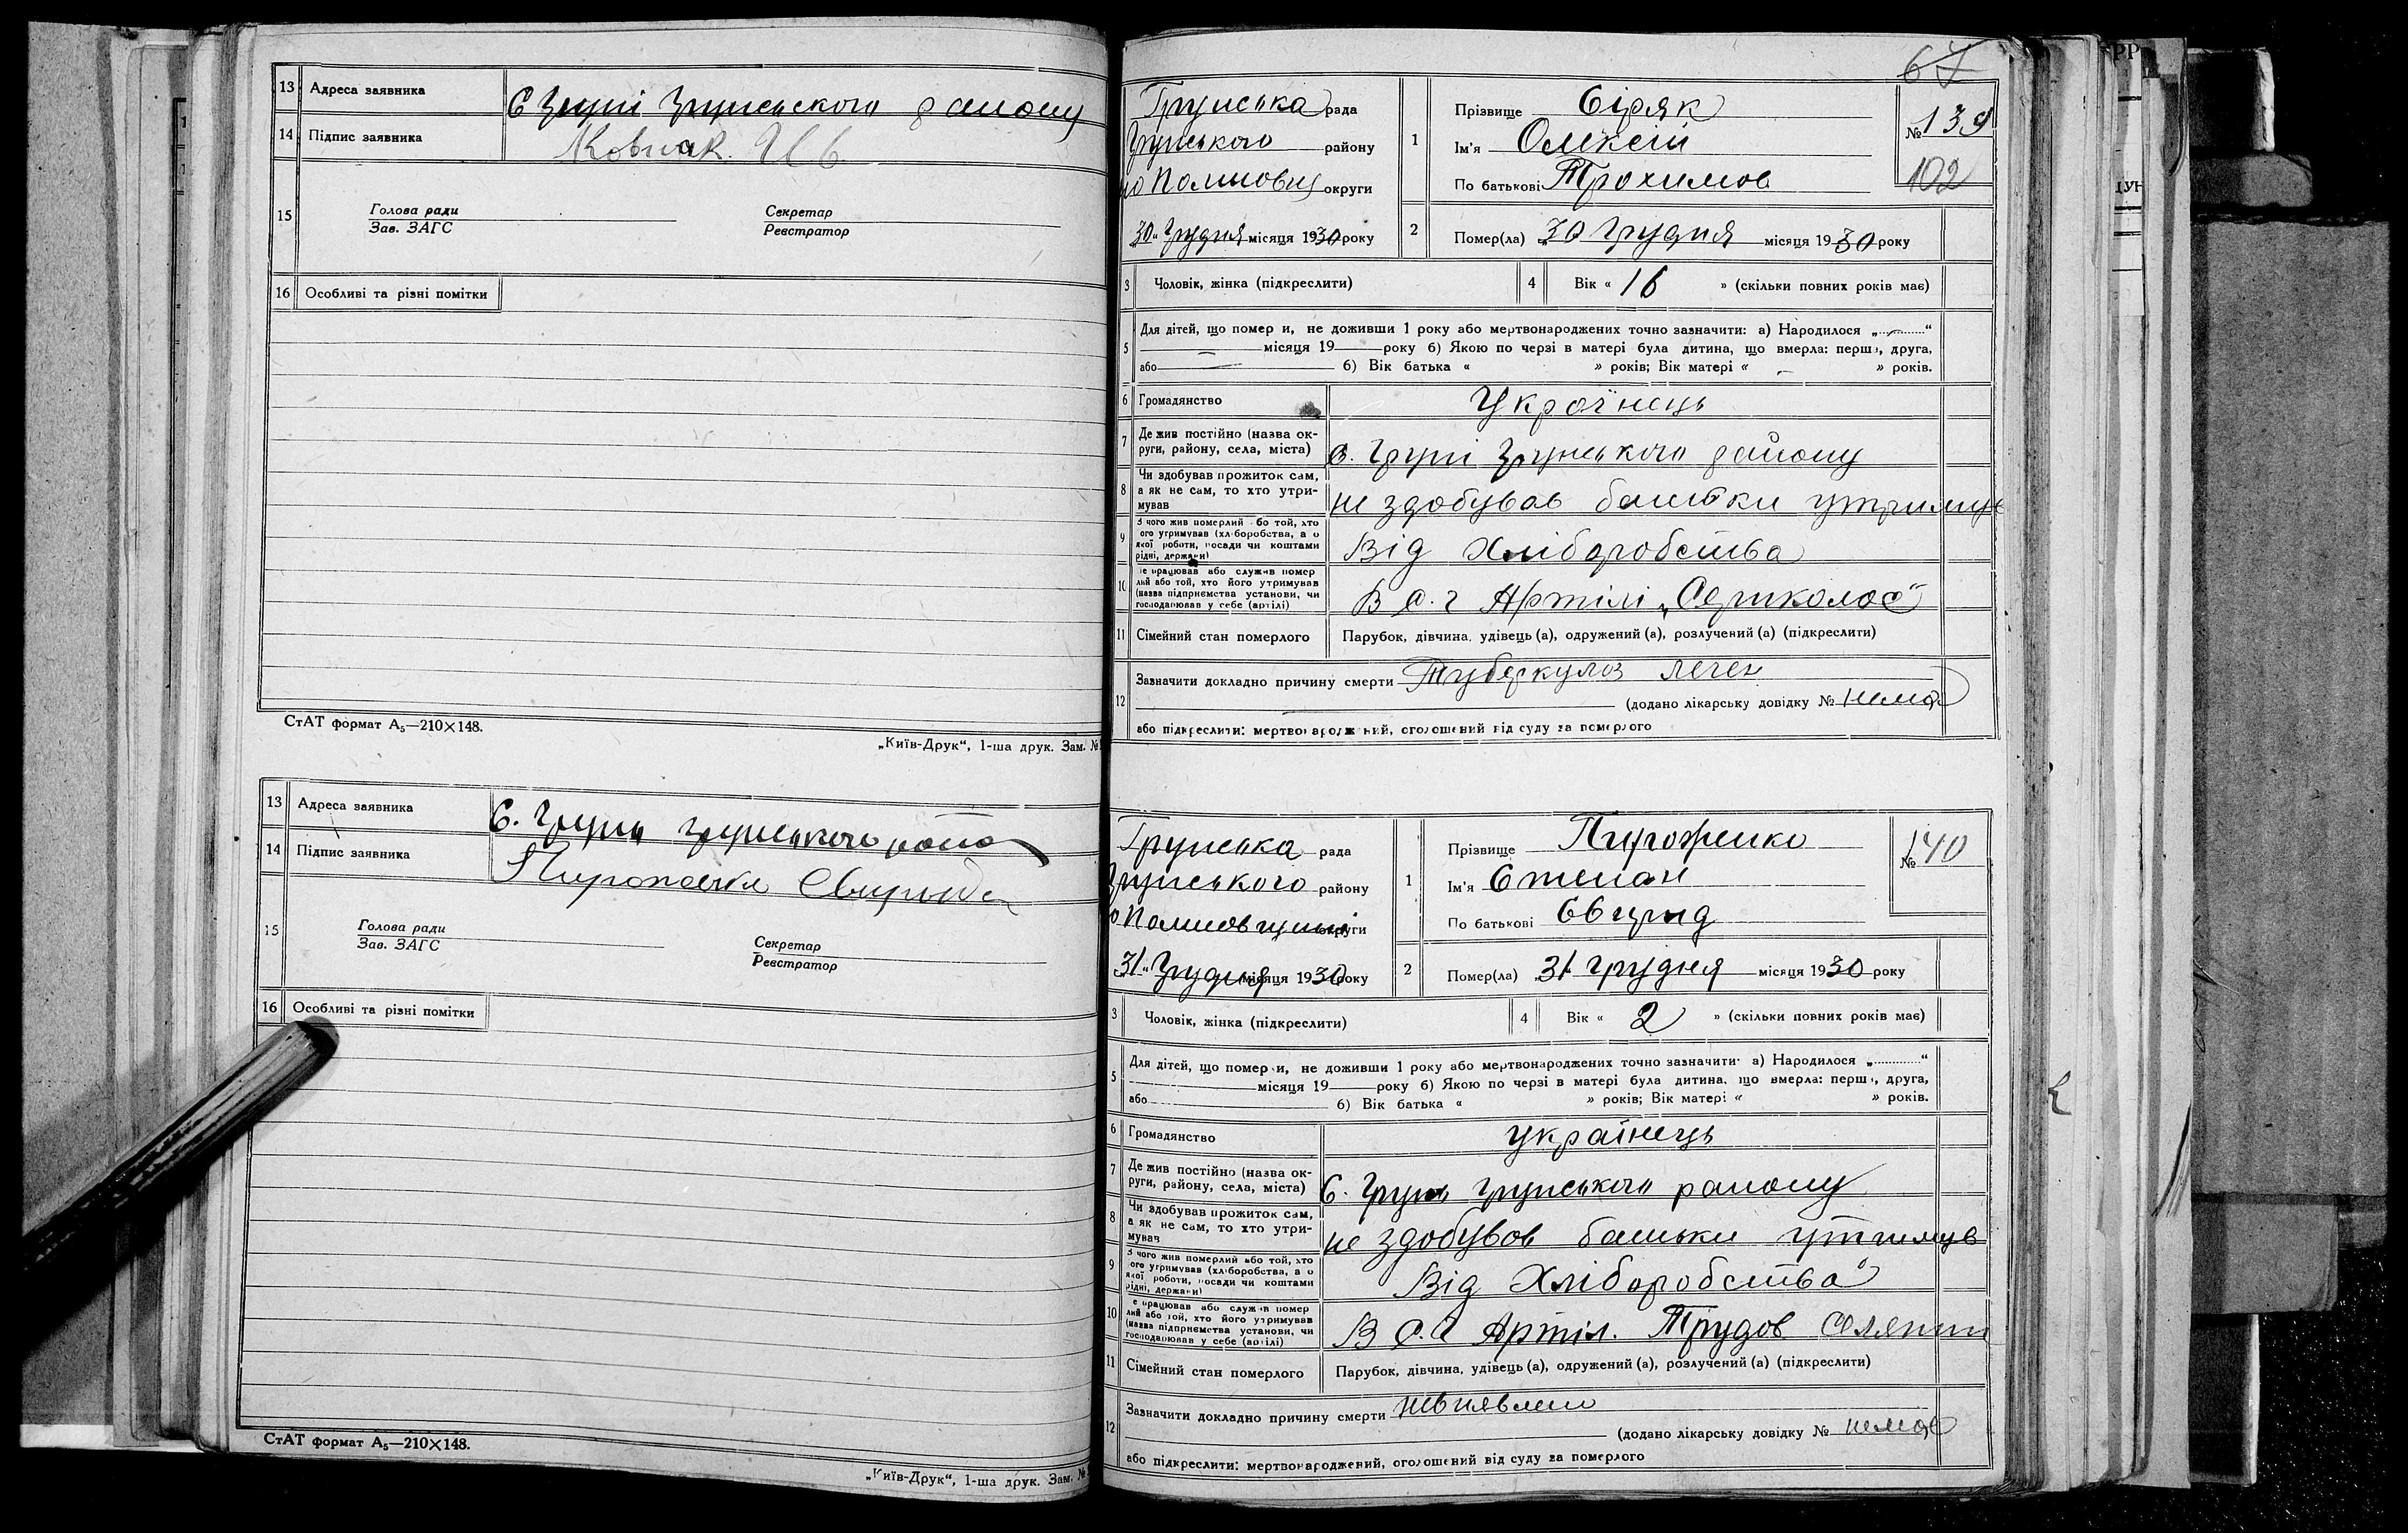 13 Адреса заявника С Груні Грунського району
14 Підпис заявника Ковпак.
15 Голова ради Секретар
Зав. ЗАГС Реєстратор
16 Особливі та різні помітки
СтАТ формат А₅—210×148.
„Київ-Друк“, 1-ша друк. Зам. №
13 Адреса заявника С. Грунь Грунського
14 Підпис заявника
15 Голова ради Секретар
Зав. ЗАГС Реєстратор
16 Особливі та різні помітки
СтАТ формат А₅—210×148.
„Київ-Друк“, 1-ша друк. Зам. №
67
Грунська рада
Грунського району
округи
30 Грудня місяця 1930 року
1 Прізвище Сіряк
Ім'я Олексій
По батькові Трохимов
№ 139
102
2 Помер(ла) 30 Грудня місяця 1930 року
3 Чоловік, жінка (підкреслити) 4 Вік « 16 » (скільки повних років має)
5 Для дітей, що помер и, не доживши 1 року або мертвонароджених точно зазначити: а) Народилося „ “
місяця 19 року б) Якою по черзі в матері була дитина, що вмерла: перша, друга,
або б) Вік батька « » років; Вік матері « » років.
6 Громадянство Україінець
7 Де жив постійно (назва ок-
руги, району, села, міста) с. Груні Грунського району
8 Чи здобував прожиток сам,
а як не сам, то хто утри-
мував не здобував батьки утримув
9 З чого жив померлий або той, хто
ого утримував (хліборобства, а о
якої роботи, посади чи коштами
рідні, держави) Від Хліборобства
10 е працював або служив помер
лий або той, хто його утримував
(назва підприємства установи, чи
господарював у себе (артілі) В С. г Артілі
11 Сімейний стан померлого Парубок, дівчина, удівець (а), одружений (а), розлучений (а) (підкреслити)
12 Зазначити докладно причину смерти Туберкулоз леген
(додано лікарську довідку № немає
або підкреслити: мертвонароджений, оголошений від суду за померлого
Грунська рада
Грунського району
округи
31 Грудня місяця 1930 року
1 Прізвище Пироженко
Ім'я Степан
По батькові Свирид
№ 140
2 Помер(ла) 31 Грудня місяця 1930 року
3 Чоловік, жінка (підкреслити) 4 Вік « 2 » (скільки повних років має)
5 Для дітей, що помер и, не доживши 1 року або мертвонароджених точно зазначити: а) Народилося „ “
місяця 19 року б) Якою по черзі в матері була дитина, що вмерла: перша, друга,
або б) Вік батька « » років; Вік матері « » років.
6 Громадянство українець
7 Де жив постійно (назва ок-
руги, району, села, міста) С. Грунь Грунського району
8 Чи здобував прожиток сам,
а як не сам, то хто утри-
мував не здобував батьки утримув
9 З чого жив померлий або той, хто
ого утримував (хліборобства, а о
якої роботи, посади чи коштами
рідні, держави) Від Хліборобства
10 е працював або служив помер
лий або той, хто його утримував
(назва підприємства установи, чи
господарював у себе (артілі) В С. г Артіл. Трудов Селянин
11 Сімейний стан померлого Парубок, дівчина, удівець (а), одружений (а), розлучений (а) (підкреслити)
12 Зазначити докладно причину смерти невиявлено
(додано лікарську довідку № немає
або підкреслити: мертвонароджений, оголошений від суду за померлого